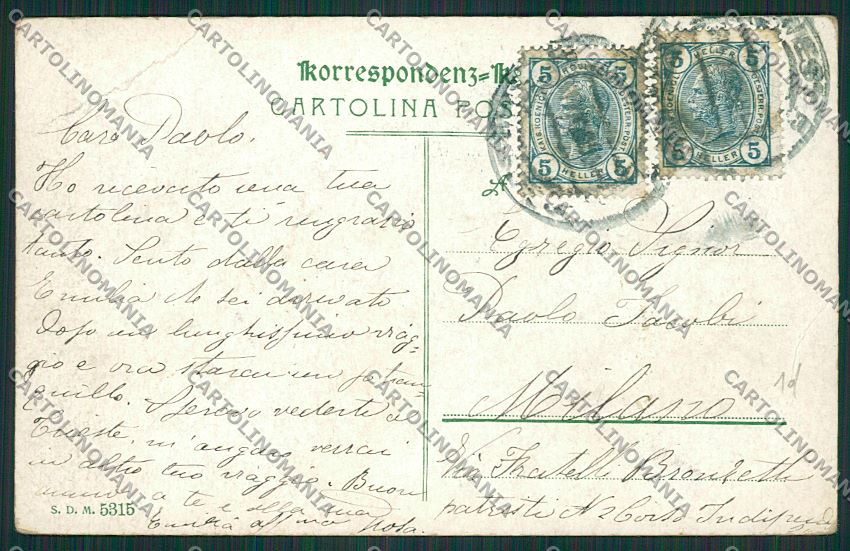 Korrespondenz=K
CARTOLINA POS
5 HELLER 5
5 HELLER 5
Caro Paolo.
Ho ricevuto una tua
cartolina e ti ringrazio
tanto. Sento dalla cara
Emilia
dopo un lunghissimo viag-
gio e ora starai un po tran-
quillo. Speravo vederti a
Trieste, m'auguro verrai
in altro tuo viaggio. Buon
anno a te e alla tua
Emilia aff.ma Rosa.
S. D. M. 5315
Egregio Signor
Paolo Jacobi
Milano
Via Fratelli Bronzetti
N 2 Corso Indipend
1d
CARTOLINOMANIA